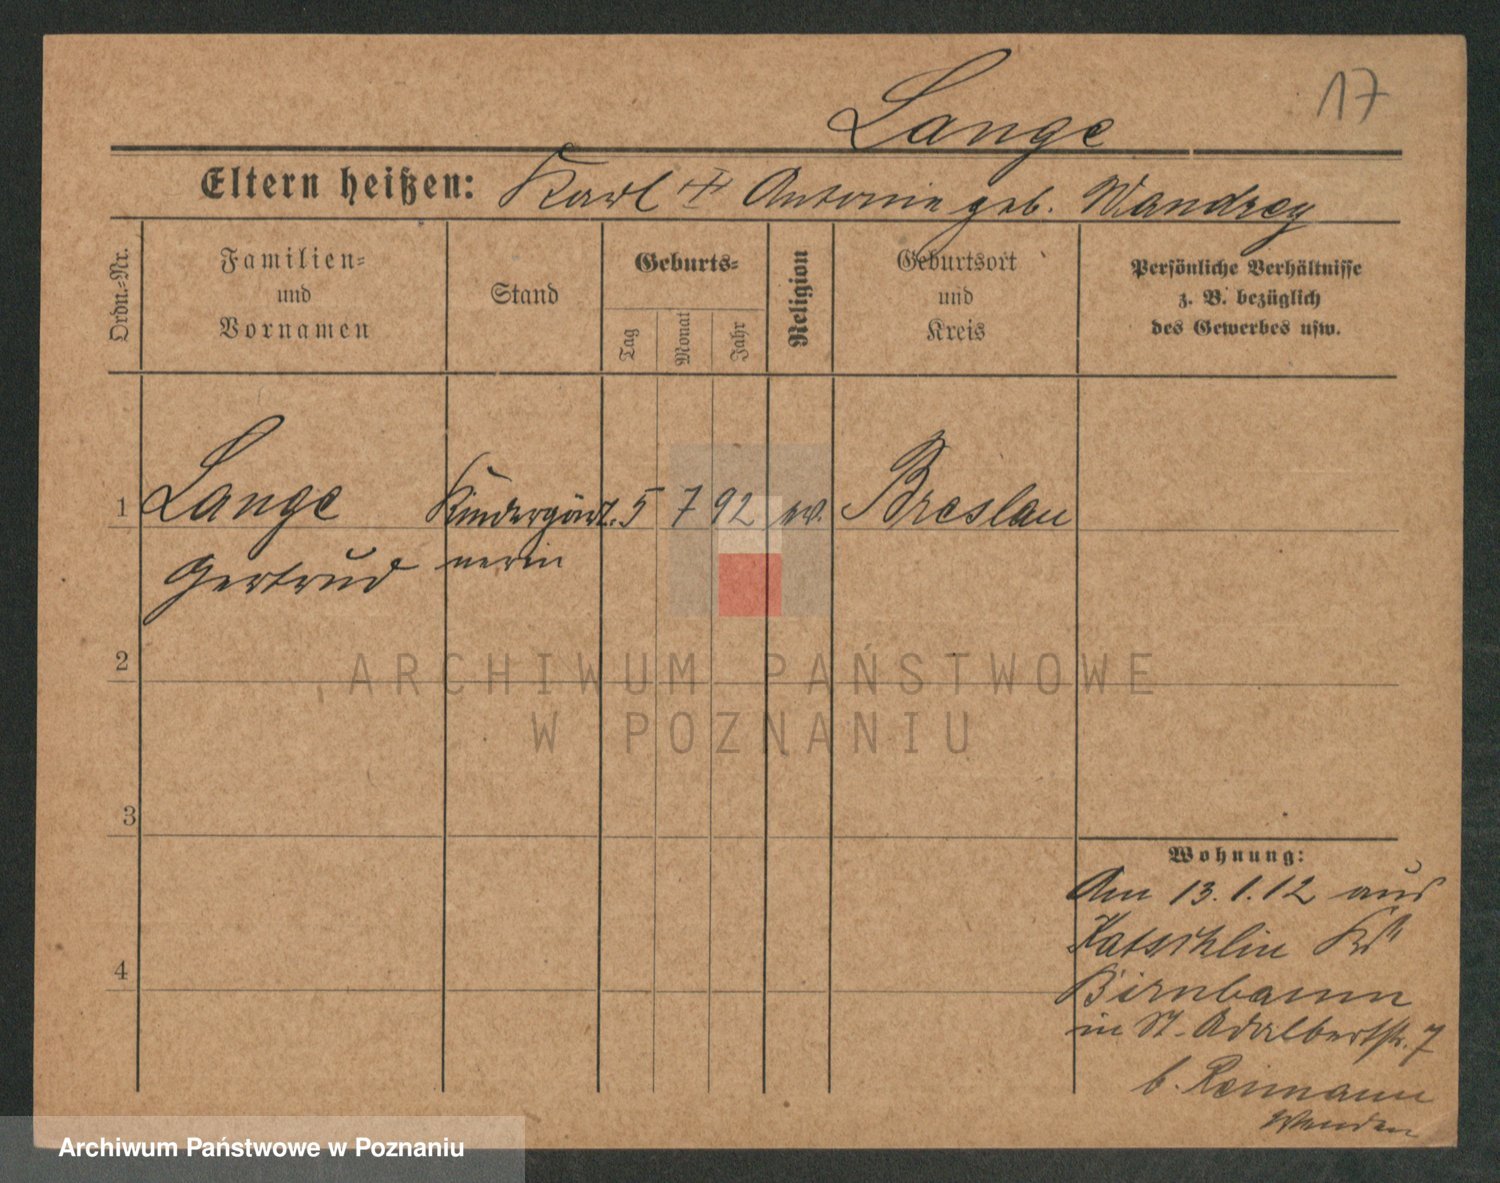 17
Lange
Eltern heißen: Karl + Antonie geb. Mandrey
Ordn.-Nr.
Familien-
und
Vornamen
Stand
Geburts-
Tag
Monat
Jahr
Religion
Geburtsort
und
Kreis
Persönliche Verhältnisse
z. B. bezüglich
des Gewerbes usw.
1 Lange Kindergärt. 5 7 92 ev. Breslau
Gertrud nerin
2
3
4
ARCHIWUM PAŃSTWOWE
W POZNANIU
Wohnung:
Am 13.1.12 aus
Birnbaum
in St. Adalbertstr. 7
b. Reimann
Archiwum Państwowe w Poznaniu